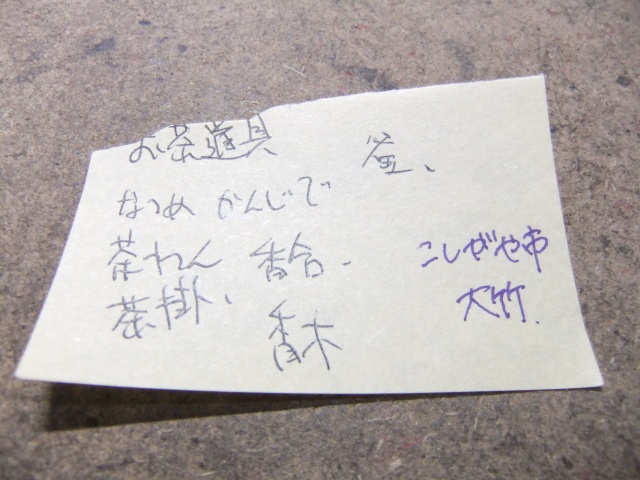 お茶道具 釜、
なつめ かんじで
茶わん 香合、
茶掛、 香木
こしがや市
大竹.